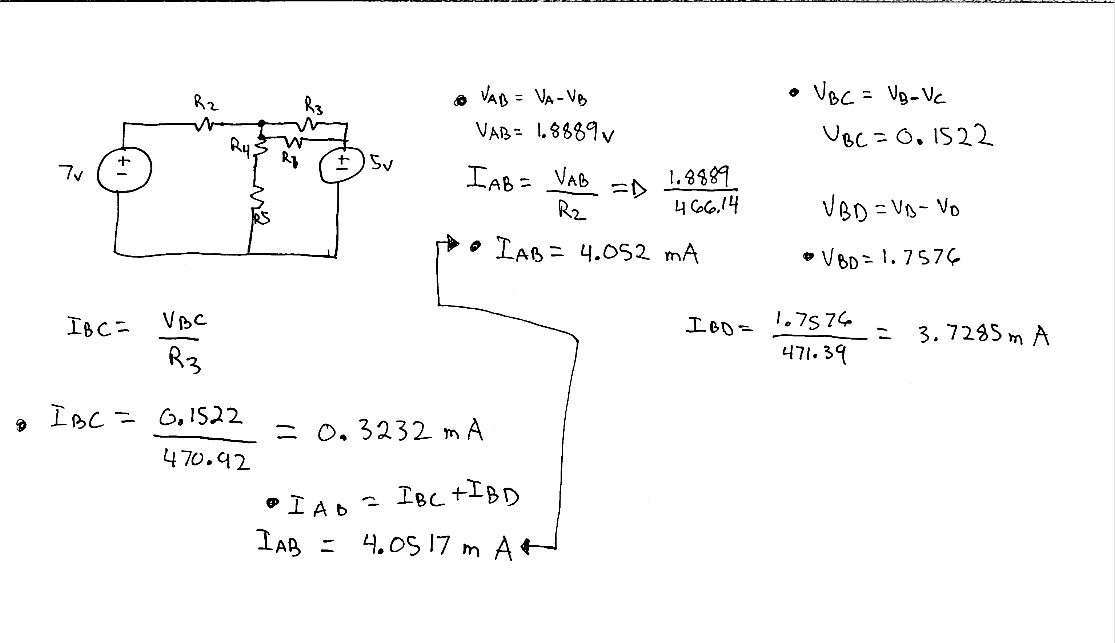 R2
R3
R4
R8
7v
5v
R5
• VAB = VA-VB
VAB = 1.8889v
IAB = VAB / R2 => 1.8889 / 466.14
• IAB = 4.052 mA
• VBC = VB-VC
VBC = 0.1522
VBD = VB - VD
• VBD = 1.7576
IBD = 1.7576 / 471.39 = 3.7285 m A
IBC = VBC / R3
• IBC = 0.1522 / 470.92 = 0.3232 mA
• IAB = IBC + IBD
IAB = 4.0517 m A